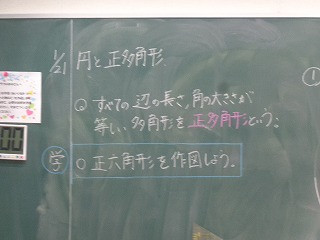 1/21 円と正多角形
○ すべての辺の長さ、角の大きさが
等しい多角形を正多角形という。
学 ○ 正六角形を作図しよう。
①
00